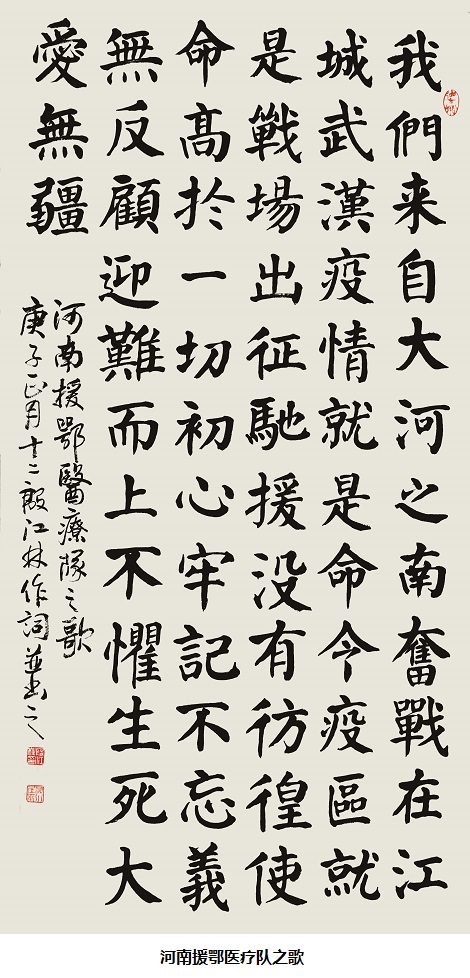 我們来自大河之南奮戰在江
城武漢疫情就是命令疫區就
是戰場出征馳援没有彷徨使
命髙於一切初心牢記不忘義
無反顧迎難而上不懼生死大
愛無疆
河南援鄂醫療隊之歌
庚子正月十二殷江林作詞並书之
河南援鄂医疗队之歌